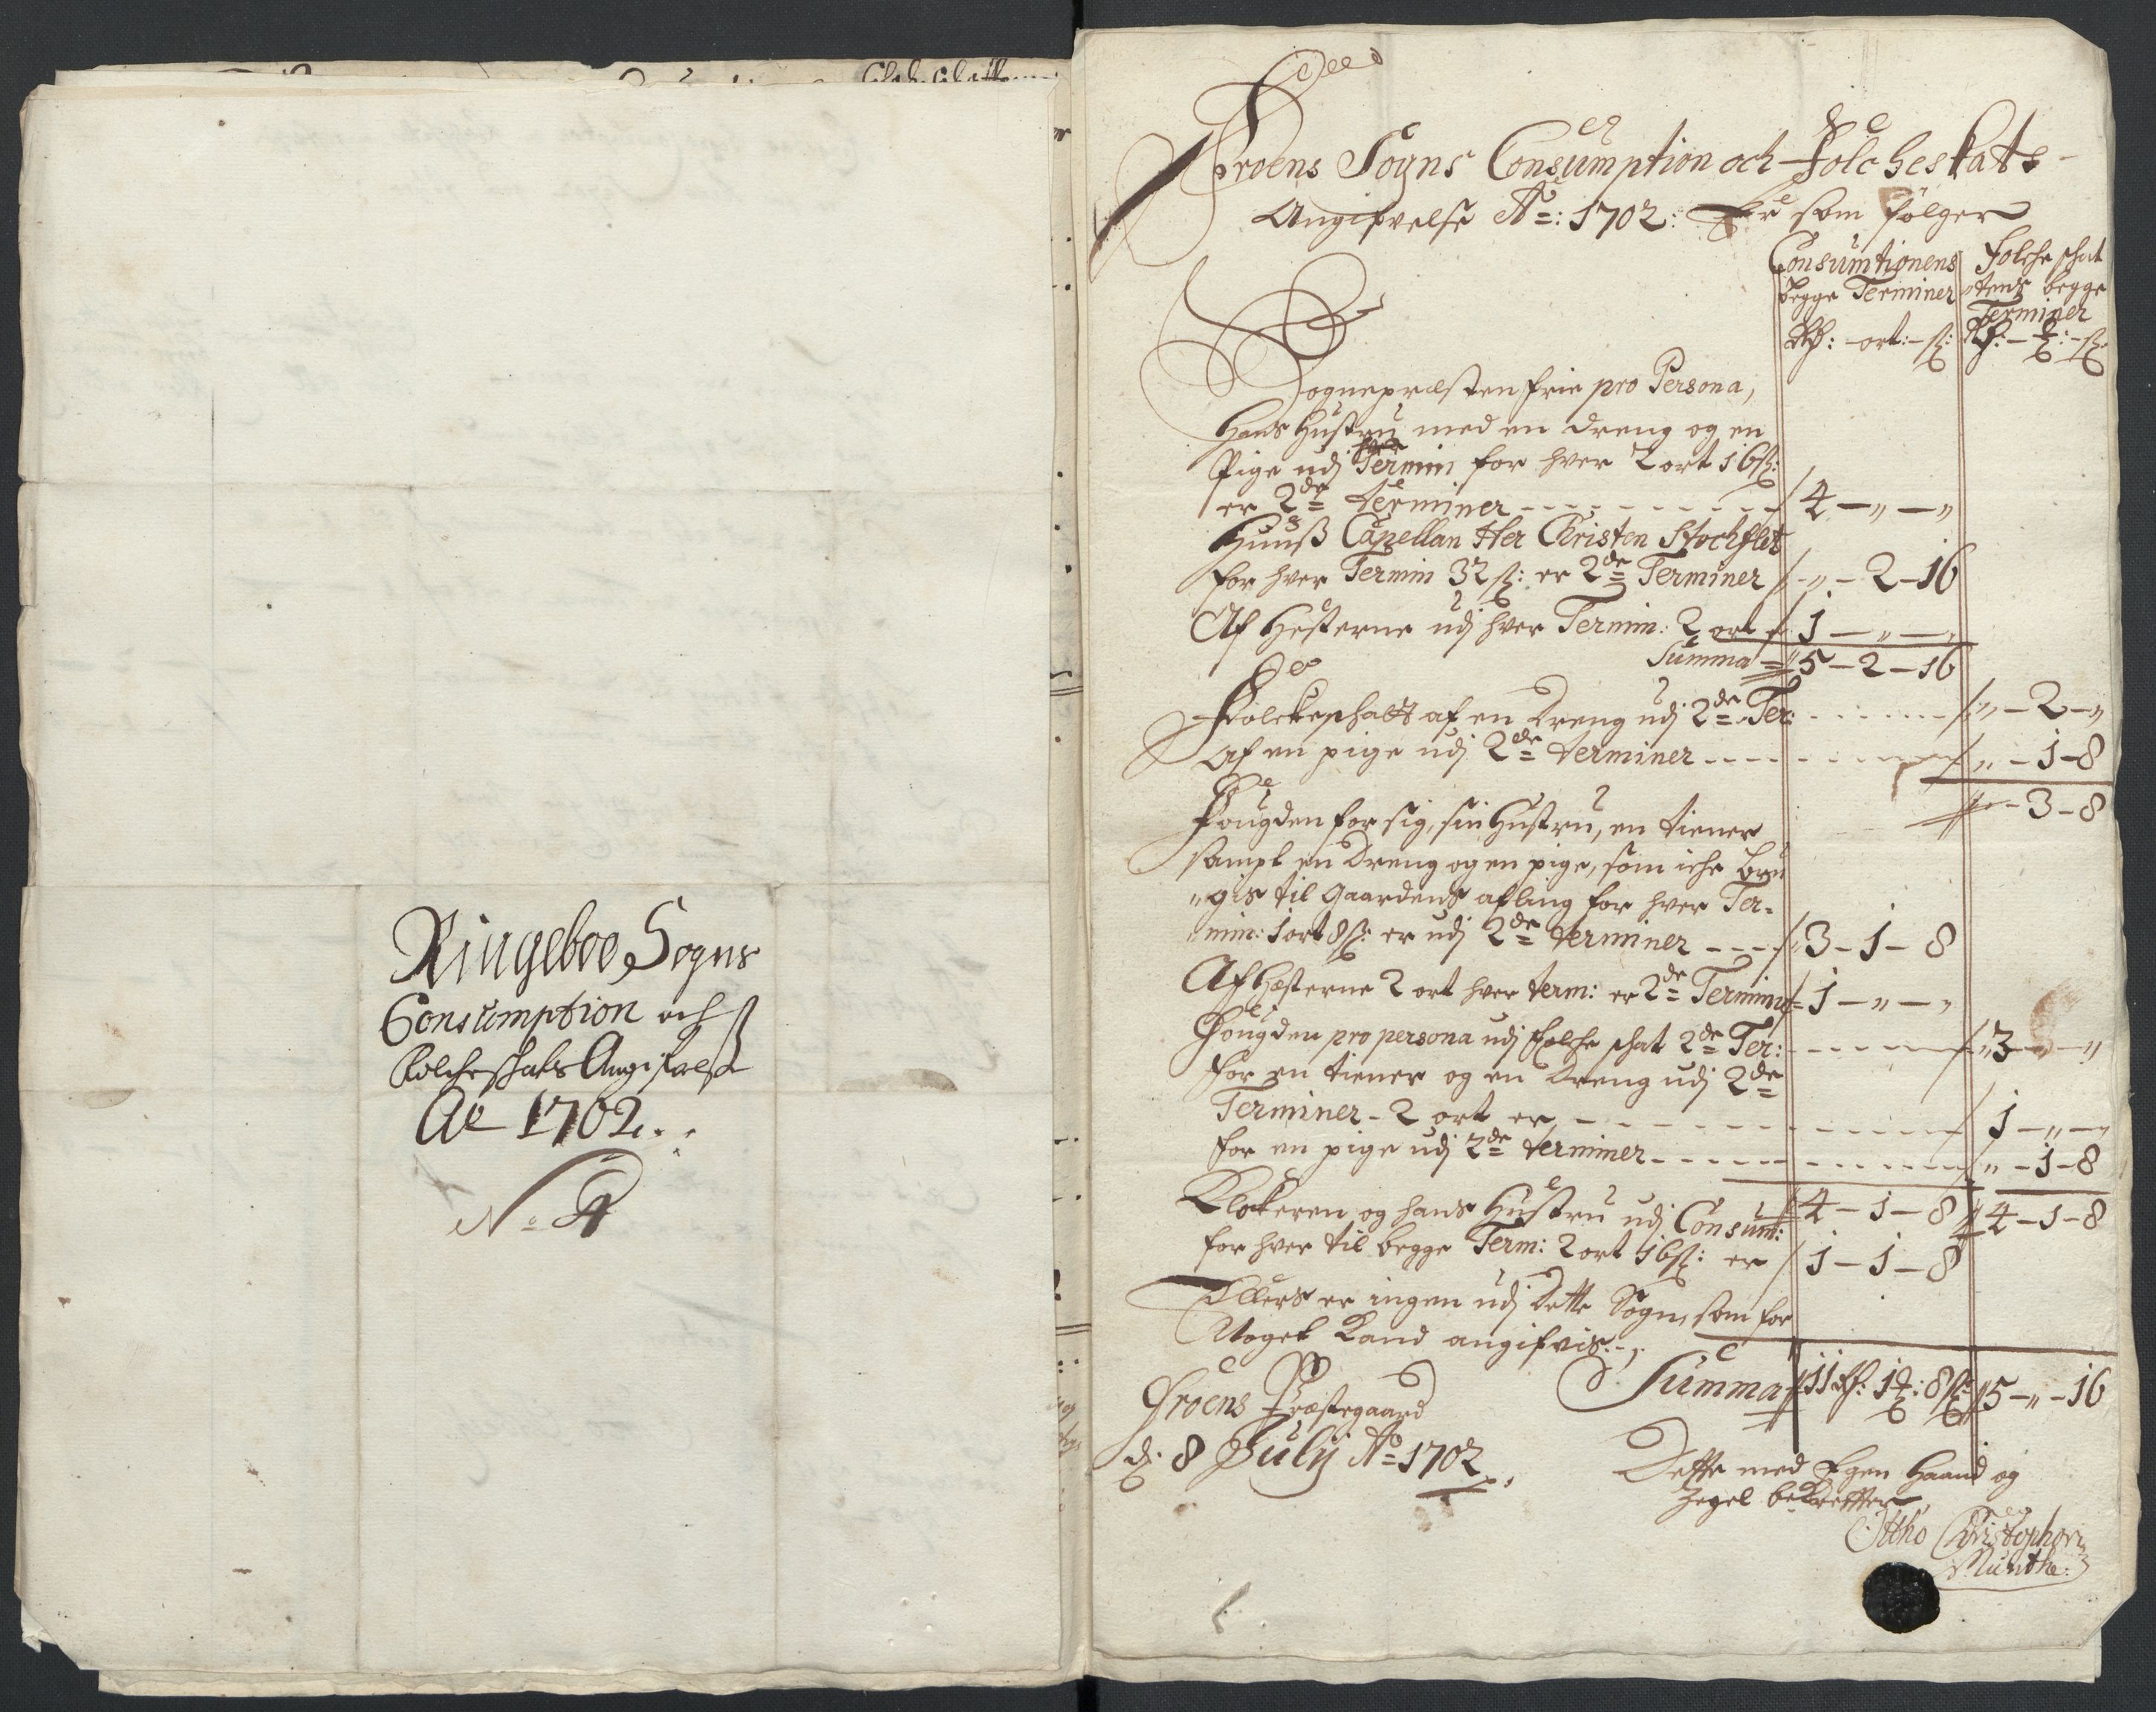 Ringeboe Sogns
Consumption och
Folcheskats Angifvelse
Ao 1702.
No 4
Froens Sogns Consumption och Folcheskats
Angifvelse Ao: 1702: Er som følger
Consumtionens
begge Terminer
Rd: - ort: - s:
Folche schat
tens begge
Terminer
Rd: - ort: - s:
Sognepræsten frie pro Persona,
Hans Hustru med en dreng og en
Pige udj hver Termin for hver 2 ort 16 s:
er 2de terminer - - - - 4 - " - "
Huuß Capellan Her Christen Stochflet
for hver Termin 32 s: er 2de Terminer " - 2 - 16
Af Hesterne udj hver Termin: 2 ort er 1 - " - "
Summa 5 - 2 - 16
Folckeschatt af en Dreng udj 2de Ter: - - - " - 2 - "
Af en pige udj 2de terminer - - - - " - 1 - 8
" - 3 - 8
Fougden for sig, sin Hustru, en tiener
sampt en Dreng og en pige, som iche bru
"gis til Gaardens afling for hver Ter-
"min: 1 ort 8 s: er udj 2de terminer - - - 3 - 1 - 8
Af Hæsterne 2 ort hver term: er 2de Termine 1 - " - "
Fougden pro persona udj Folche schat 2de Ter: - - - 3 - " - "
for en tiener og en Dreng udj 2de
Terminer - 2 ort er - - - - 1 - " - "
for en pige udj 2de terminer - - - - " - 1 - 8
4 - 1 - 8 4 - 1 - 8
Klockeren og hans Hustru udj Consum:
for hver til begge Term: 2 ort 16 s: er 1 - 1 - 8
Ellers er ingen udj Dette Sogn, som for
Noget Kand angifvis.
Summa 11 Rd: 1 ort: 8 s: 5 - " - 16
Froens Præstegaard
d. 8 Julij Ao 1702
Dette med Egen Haand og
Zegel bekreffter
Ottho Christophers
Munthe